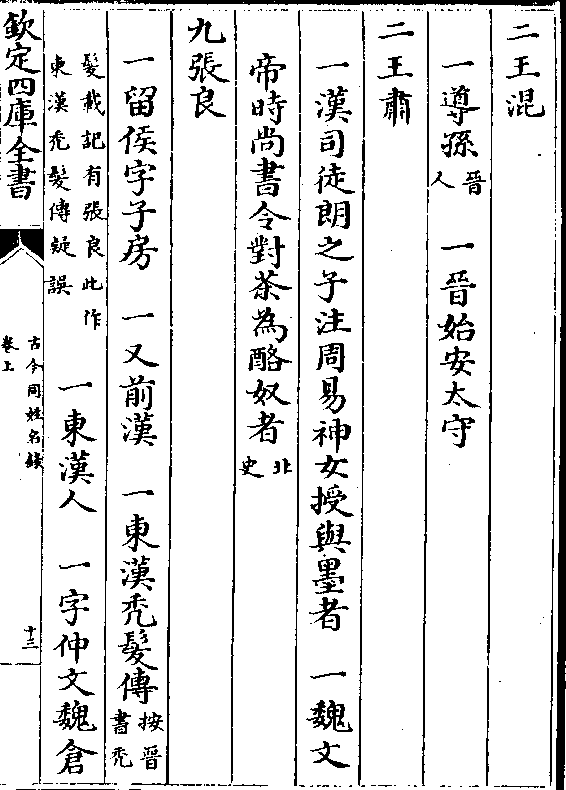 二王混
一導孫晉人　一晉始安太守
二王肅
一漢司徒朗之子注周易神女授與墨者　一魏文
帝時尚書令對茶為酪奴者北史
九張良
一留侯字子房　一又前漢　一東漢禿髮傳按晉書禿
髮載記有張良此作東漢禿髮傳疑誤　一東漢人　一字仲文魏倉
欽定四庫全書
古今同姓名錄
卷上
十三